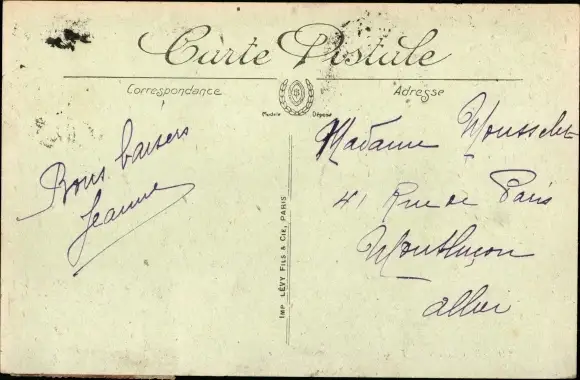 Carte Postale
Correspondance
Adresse
Modèle Déposé
Bons baisers
Jeanne
IMP. LÉVY FILS & CIE, PARIS
Madame
41 Rue de Paris
Montluçon
allier